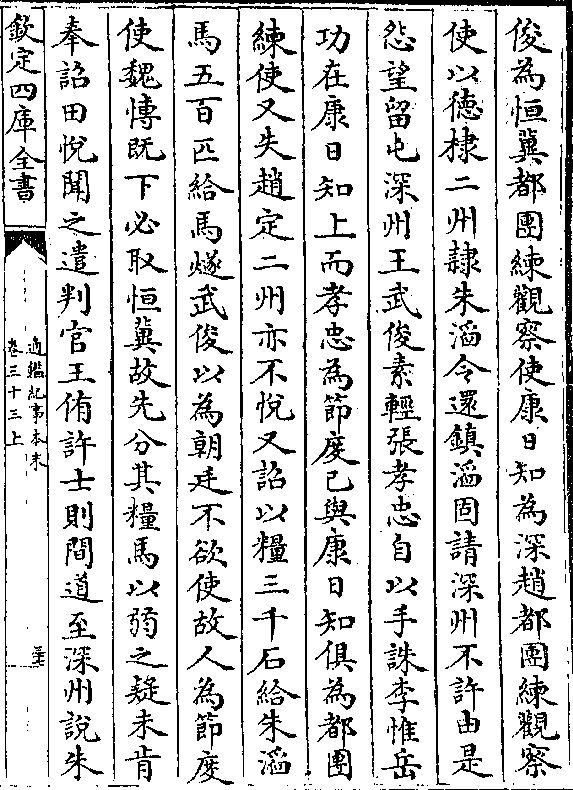 俊為恒冀都團練觀察使康日知為深趙都團練觀察
使以德棣二州隷朱滔令還鎮滔固請深州不許由是
怨望留屯深州王武俊素輕張孝忠自以手誅李惟岳
功在康日知上而孝忠為節度己與康日知俱為都團
練使又失趙定二州亦不悦又詔以糧三千石給朱滔
馬五百匹給馬燧武俊以為朝廷不欲使故人為節度
使魏博既下必取恒冀故先分其糧馬以弱之疑未肯
奉詔田悦聞之遣判官王侑許士則間道至深州說朱
欽定四庫全書
通鑑紀事本末
卷三十三上